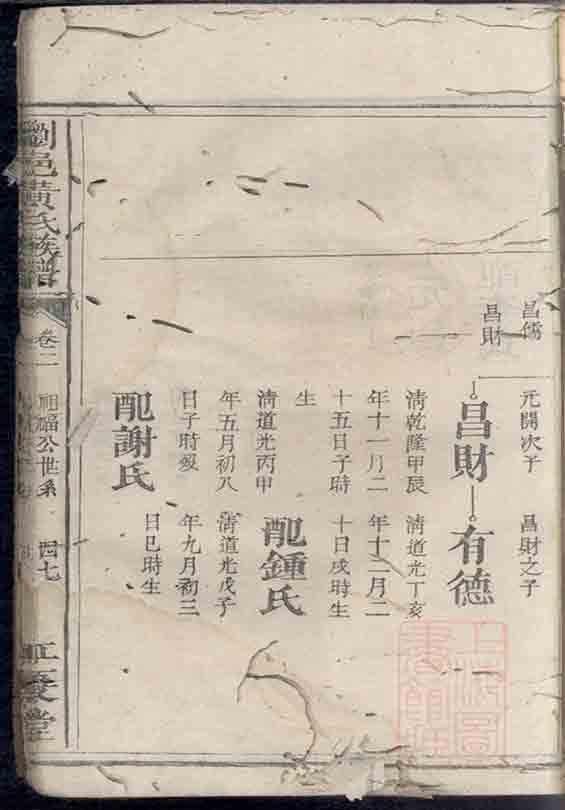 昌儒
昌財
元開次子
昌財
清乾隆甲辰
年十一月二
十五日子時
生
清道光丙申
年五月初八
日子時歿
配謝氏
昌財之子
有德
清道光丁亥
年十二月二
十日戌時生
配鍾氏
清道光戊子
年九月初三
日巳時生
瀏邑黃氏族譜
卷二
公世系
四七
堂
上海圖
書館